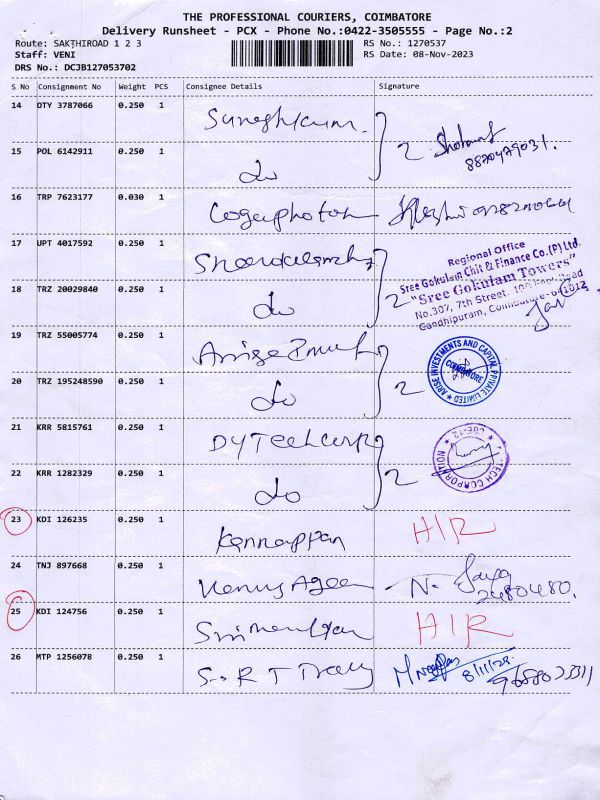 THE PROFESSIONAL COURIERS, COIMBATORE
Delivery Runsheet - PCX - Phone No.:0422-3505555 - Page No.:2
Route: SAKTHIROAD 1 2 3 RS No.: 1270537
Staff: VENI RS Date: 08-Nov-2023
DRS No.: DCJB127053702
S No Consignment No Weight PCS Consignee Details Signature
14 OTY 3787066 0.250 1
15 POL 6142911 0.250 1 do 2 8870479031.
16 TRP 7623177 0.030 1
17 UPT 4017592 0.250 1
Regional Office
Sree Gokulam Chit & Finance Co.(P) Ltd.
"Sree Gokulam Towers"
No.307, 7th Street, 100 Feet Road
Gandhipuram, Coimbatore-641012
18 TRZ 20029840 0.250 1 do 2
19 TRZ 55005774 0.250 1
ARISE INVESTMENTS AND CAPITAL PRIVATE LIMITED
COIMBATORE
20 TRZ 195248590 0.250 1 do 2
21 KRR 5815761 0.250 1 DYTechcorp
CBE-12
TECH CORPORATION
22 KRR 1282329 0.250 1 do 2
23 KDI 126235 0.250 1 Kannappan H/R
24 TNJ 897668 0.250 1 N. 2480480.
25 KDI 124756 0.250 1 H/R
26 MTP 1256078 0.250 1 8/11/23